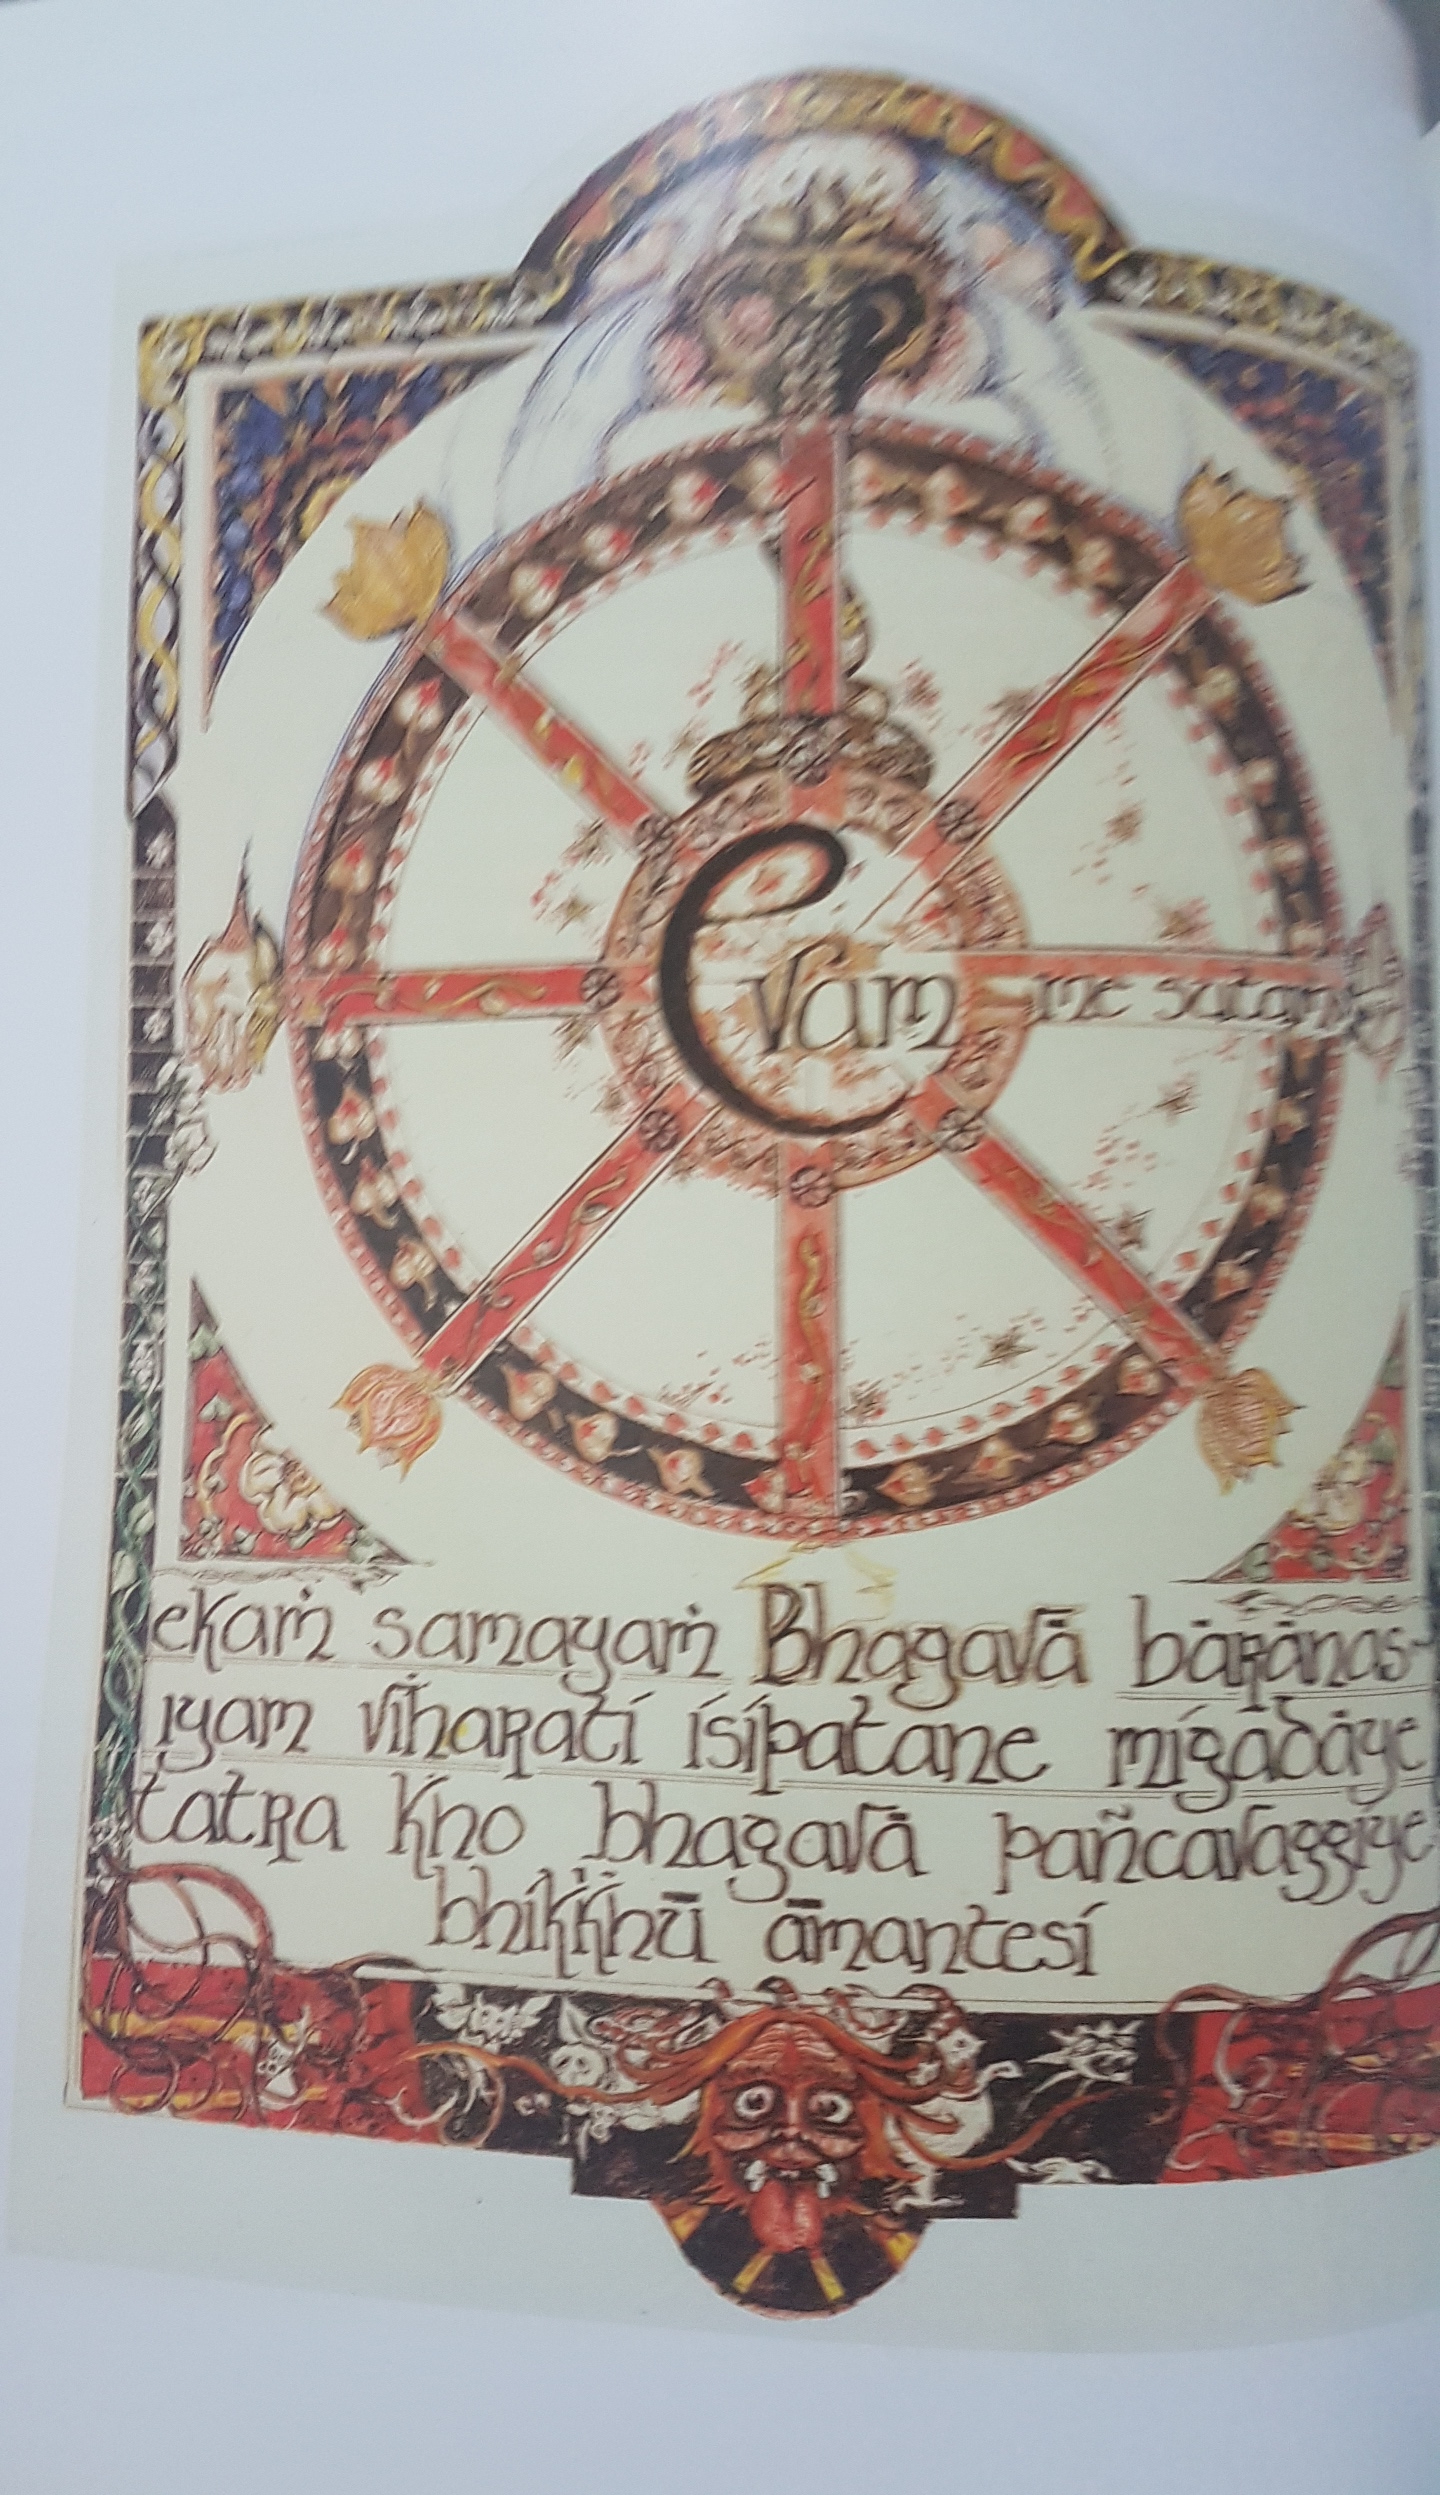 Evam me sutam
ekaṁ samayaṁ Bhagavā bārānas-
iyam viharati isipatane migadāye
tatra kho bhagavā pañcavaggiye
bhikkhū āmantesi